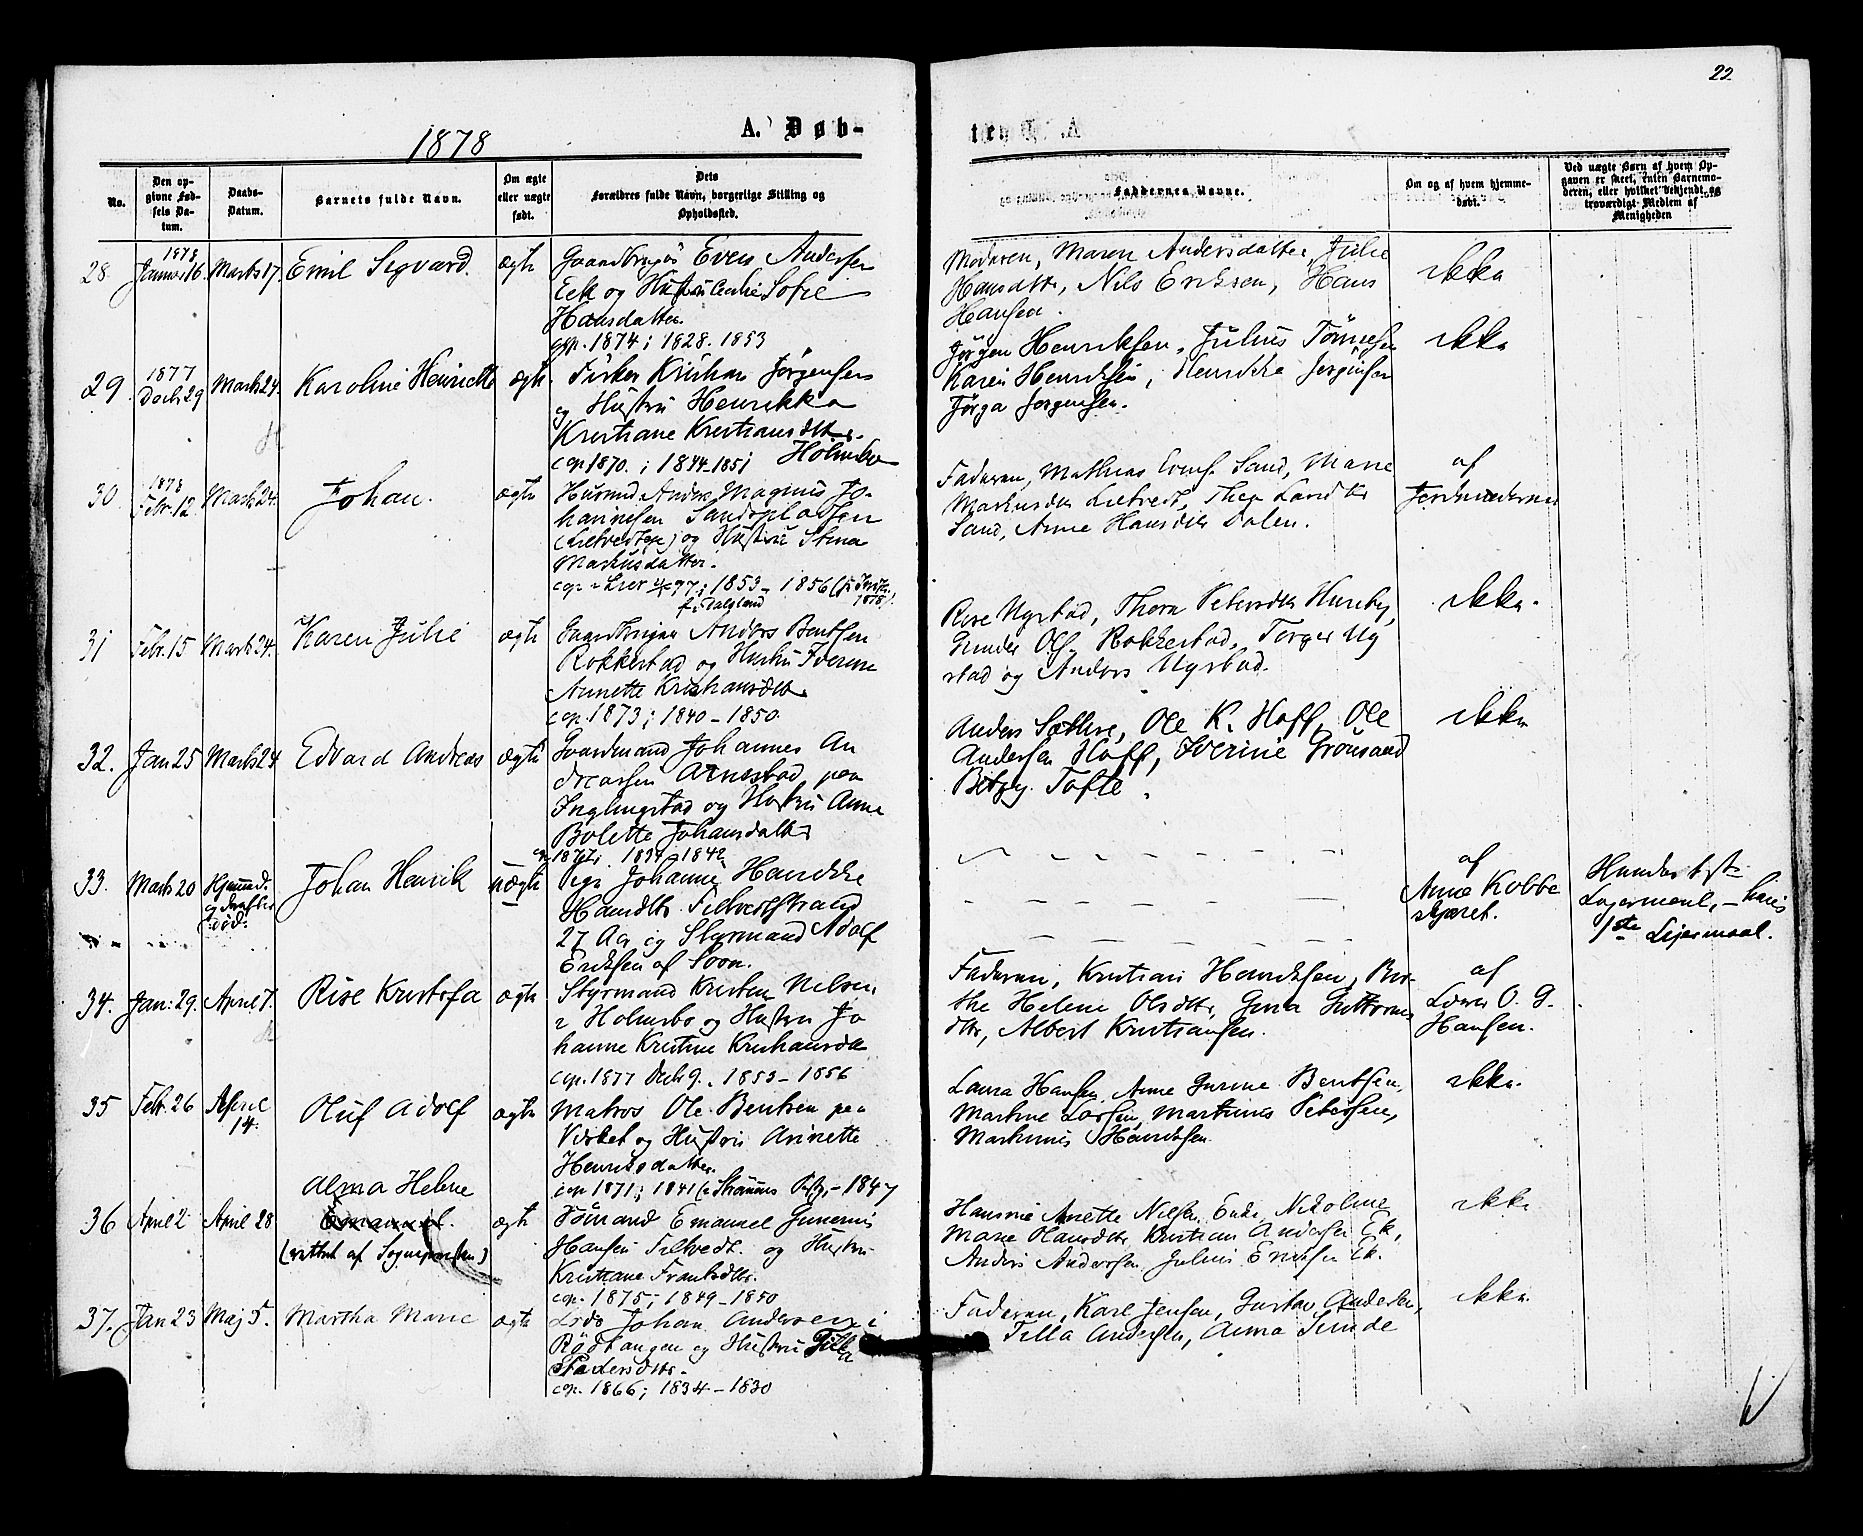 22.
1878
A. Døb-
No.
Den op-
givne Fød-
sels Da-
tum.
Daabs-
Datum.
Barnets fulde Navn.
Om ægte
eller uægte
født.
Dets
Forældres fulde Navn, borgerlige Stilling og
Opholdssted.
Faddernes Navne.
Om og af hvem hjemme-
døbt.
Ved uægte Børn af hvem Op-
gaven er skeet, enten Barnemo-
deren, eller hvilket bekjendt og
troværdigt Medlem af
Menigheden
28.
1878
Januar 16
Marts 17.
Emil Segvard.
ægte
Even Andersen
Eek og Hustru Sofie
Hansdatter.
cop. 1874; 1828. 1853
Moderen, Maren Andersdatter, Julie
Hansdttr, Nils Eriksen, Hans
Hansen.
ikke
29.
1877
Decb 29
Marts 24.
Karoline Henriette
ægte
Fisker Kristian Jørgensen
og Hustru Henrikka
Kristiane Kristiansdttr.
Holmsbo
cop 1870.; 1844-1851
Jørgen Henriksen, Julius
Karen Henriksen, Henrikke Jørgensen
Jørgensen.
ikke
30.
1878
Febr. 12.
Marts 24.
Johan.
ægte
Anders Magnus Jo-
hannesen Sandspladsen
og Hustru Stina
Markusdatter.
1853 - 1856
Faderen, Mathias Sand, Marie
Markusdttr
Sand, Anne Hansdttr Dalen.
af
Jordmoderen
31
Febr. 15
Marts 24.
Karen Julie
ægte
Gaardbruger Anders Bentsen
Rokkestad og Hustru Iverine
Annette Kristiansdttr
cop. 1873; 1840 - 1850.
Nystad, Thora Petersdttr Huseby,
Gunder Ols. Rokkestad, Torger Ny
stad og Anders Nystad.
ikke.
32.
Jan 25
Marts 24
Edvard Andreas
ægte
Gaardmand Johannes An
dreassen Arnestad paa
Inglingstad og Hustru Anne
Bolette Johansdatter
1877; 1842
Anders Sættre, Ole K. Hoff, Ole
Andersen Hoff, Iverine Grønsand
Betzy Tofte.
ikke
33.
Marts 20
Hjemmed.
og derefter
død.
Johan Henrik
uægte
Pige Johanne Henrikke
Hansdttr
27 Aar og Styrmand Adolf
Eriksen af Soon.
af
Anne Kobbe
skjæret.
Hendes 1ste
Lejermaal, – hans
1ste Lejermaal.
34.
Jan: 29.
April 7.
Rise Kristofa
ægte
Styrmand Kristen Nilsen
i Holmsbo og Hustru Jo
hanne Kristine Kristiansdttr
cop. 1877 Decb 9., 1853 - 1856
Faderen, Kristian Henriksen, Ber-
the Helene Olsdttr, Guttorms
dttr, Albert Kristiansen.
af
Lærer O. G.
Hansen.
35
Feb. 26
April
14.
Oluf Adolf
ægte
Matros Ole Bentsen paa
Værket og Hustru Annette
Henriksdatter.
cop 1871; 1841 - 1847
Laura Hansen, Anne Gurine Bentsen,
Martine Larsen, Martinus Petersen,
Markinus Henriksen.
ikke.
36
April 2
April 28
Alma Helene
Emanuel.
(rettet af Sognepresten)
ægte
Tømmand Emanuel Gunerius
Hansen Tilevedt. og Hustru
Kristiane Frantsdttr.
cop. 1875; 1849 - 1850
Annette Nilsen, Nikoline
Marie Hansdttr Kristian Andersen Ek,
Anders Andersen Julius Eriksen Ek.
ikke
37.
Jan 23
Maj 5.
Martha Marie
ægte
Lods Johan Andersen i
Rødtangen og Hustru Tilla
Pedersdttr.
cop. 1866; 1834 - 1830
Faderen, Karl Jensen, Gustav Andersen,
Tilla Andersen, Anna Sunde
ikke